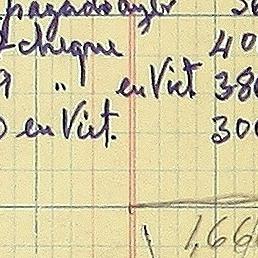 pagado ayer
cheque 40
9 " en Viet 380
en Viet. 300
1,66